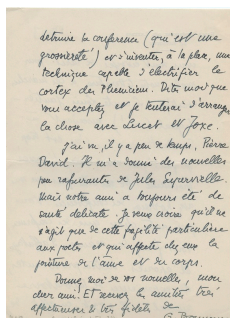 détruire la conférence (qui est une
grossièreté) et d'inventer, à la place, une
technique capable d'électrifier le
cortex des Athéniens. Dites moi que
vous acceptez et je tenterai d'arranger
la chose avec Lescot et Joxe.
J'ai vu, il y a peu de temps, Pierre
David. Il m'a donné des nouvelles
peu rassurantes de Jules Supervielle
Mais notre ami a toujours été de
santé délicate. Je veux croire qu'il ne
s'agit que de cette fragilité particulière
aux poètes et qui affecte chez eux la
jointure de l'âme et du corps.
Donnez moi de vos nouvelles, mon
cher ami. Et recevez les amitiés très
affectueuses et très fidèles de
G.